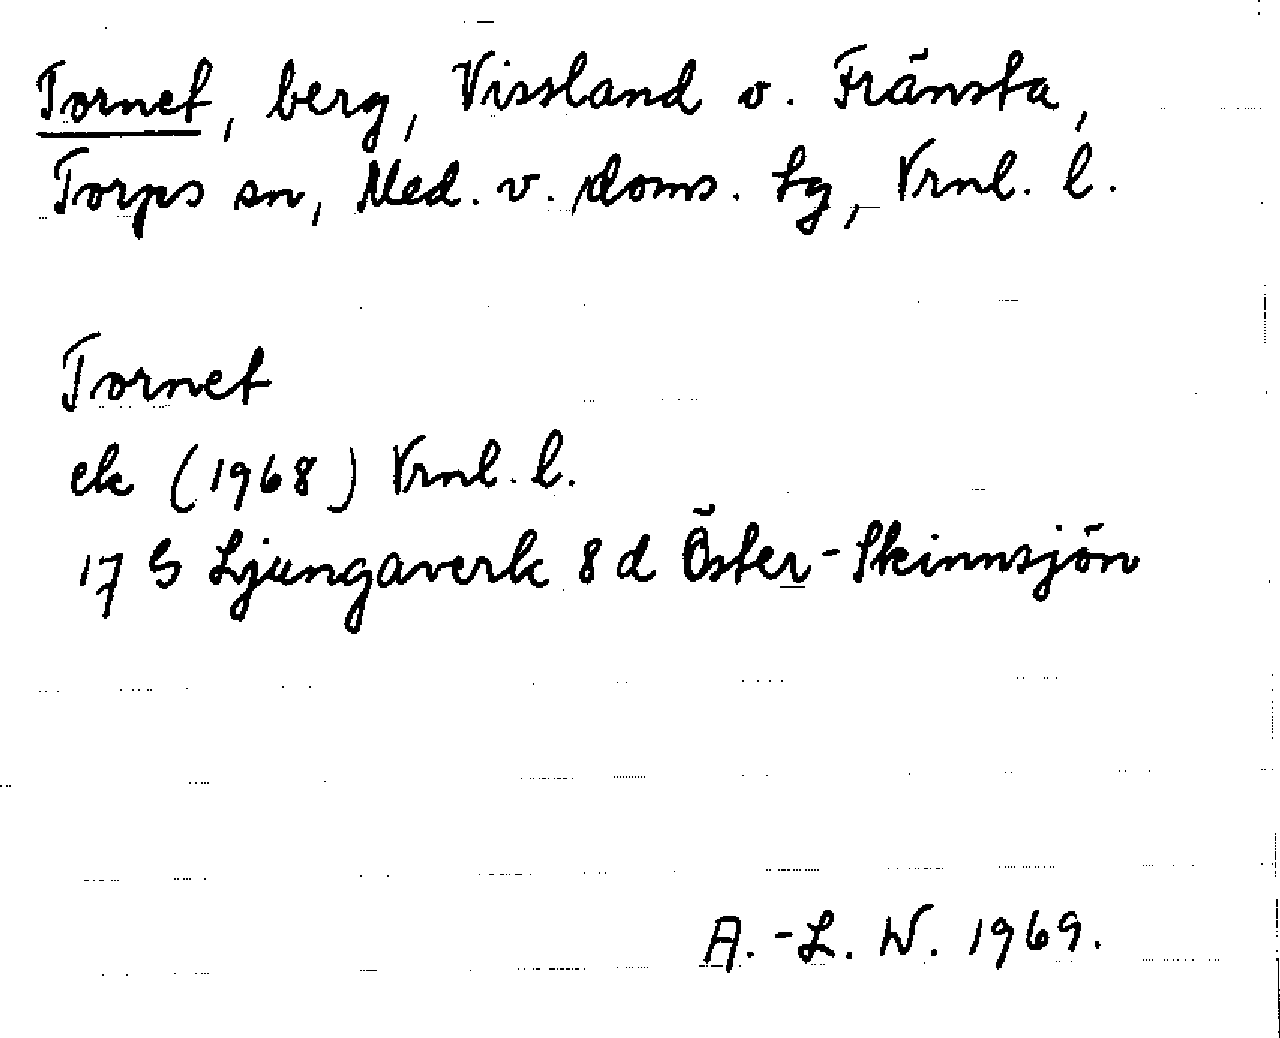 Tornet, berg, Vissland o. Fränsta,
Torps sn, Med. v. doms. Lg, Vrnl. l.
Tornet
ek (1968) Vrnl. l.
17 G Ljungaverk 8 d Öster-Skinnsjön
A.-L. W. 1969.